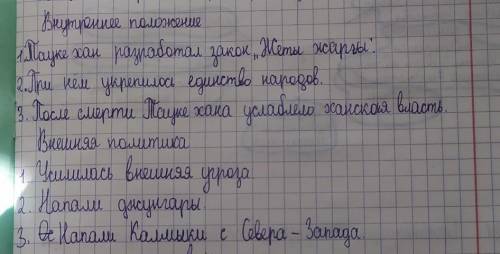 Внутреннее положение
1. Тауке хан разработал закон „Жеты жаргы".
2. При нем укрепилось единство народов.
3. После смерти Тауке хана услабело ханская власть.
Внешняя политика
1 Усилилась внешняя угроза
2. Напали джунгары.
3. Напали Калмыки с Севера-Запада